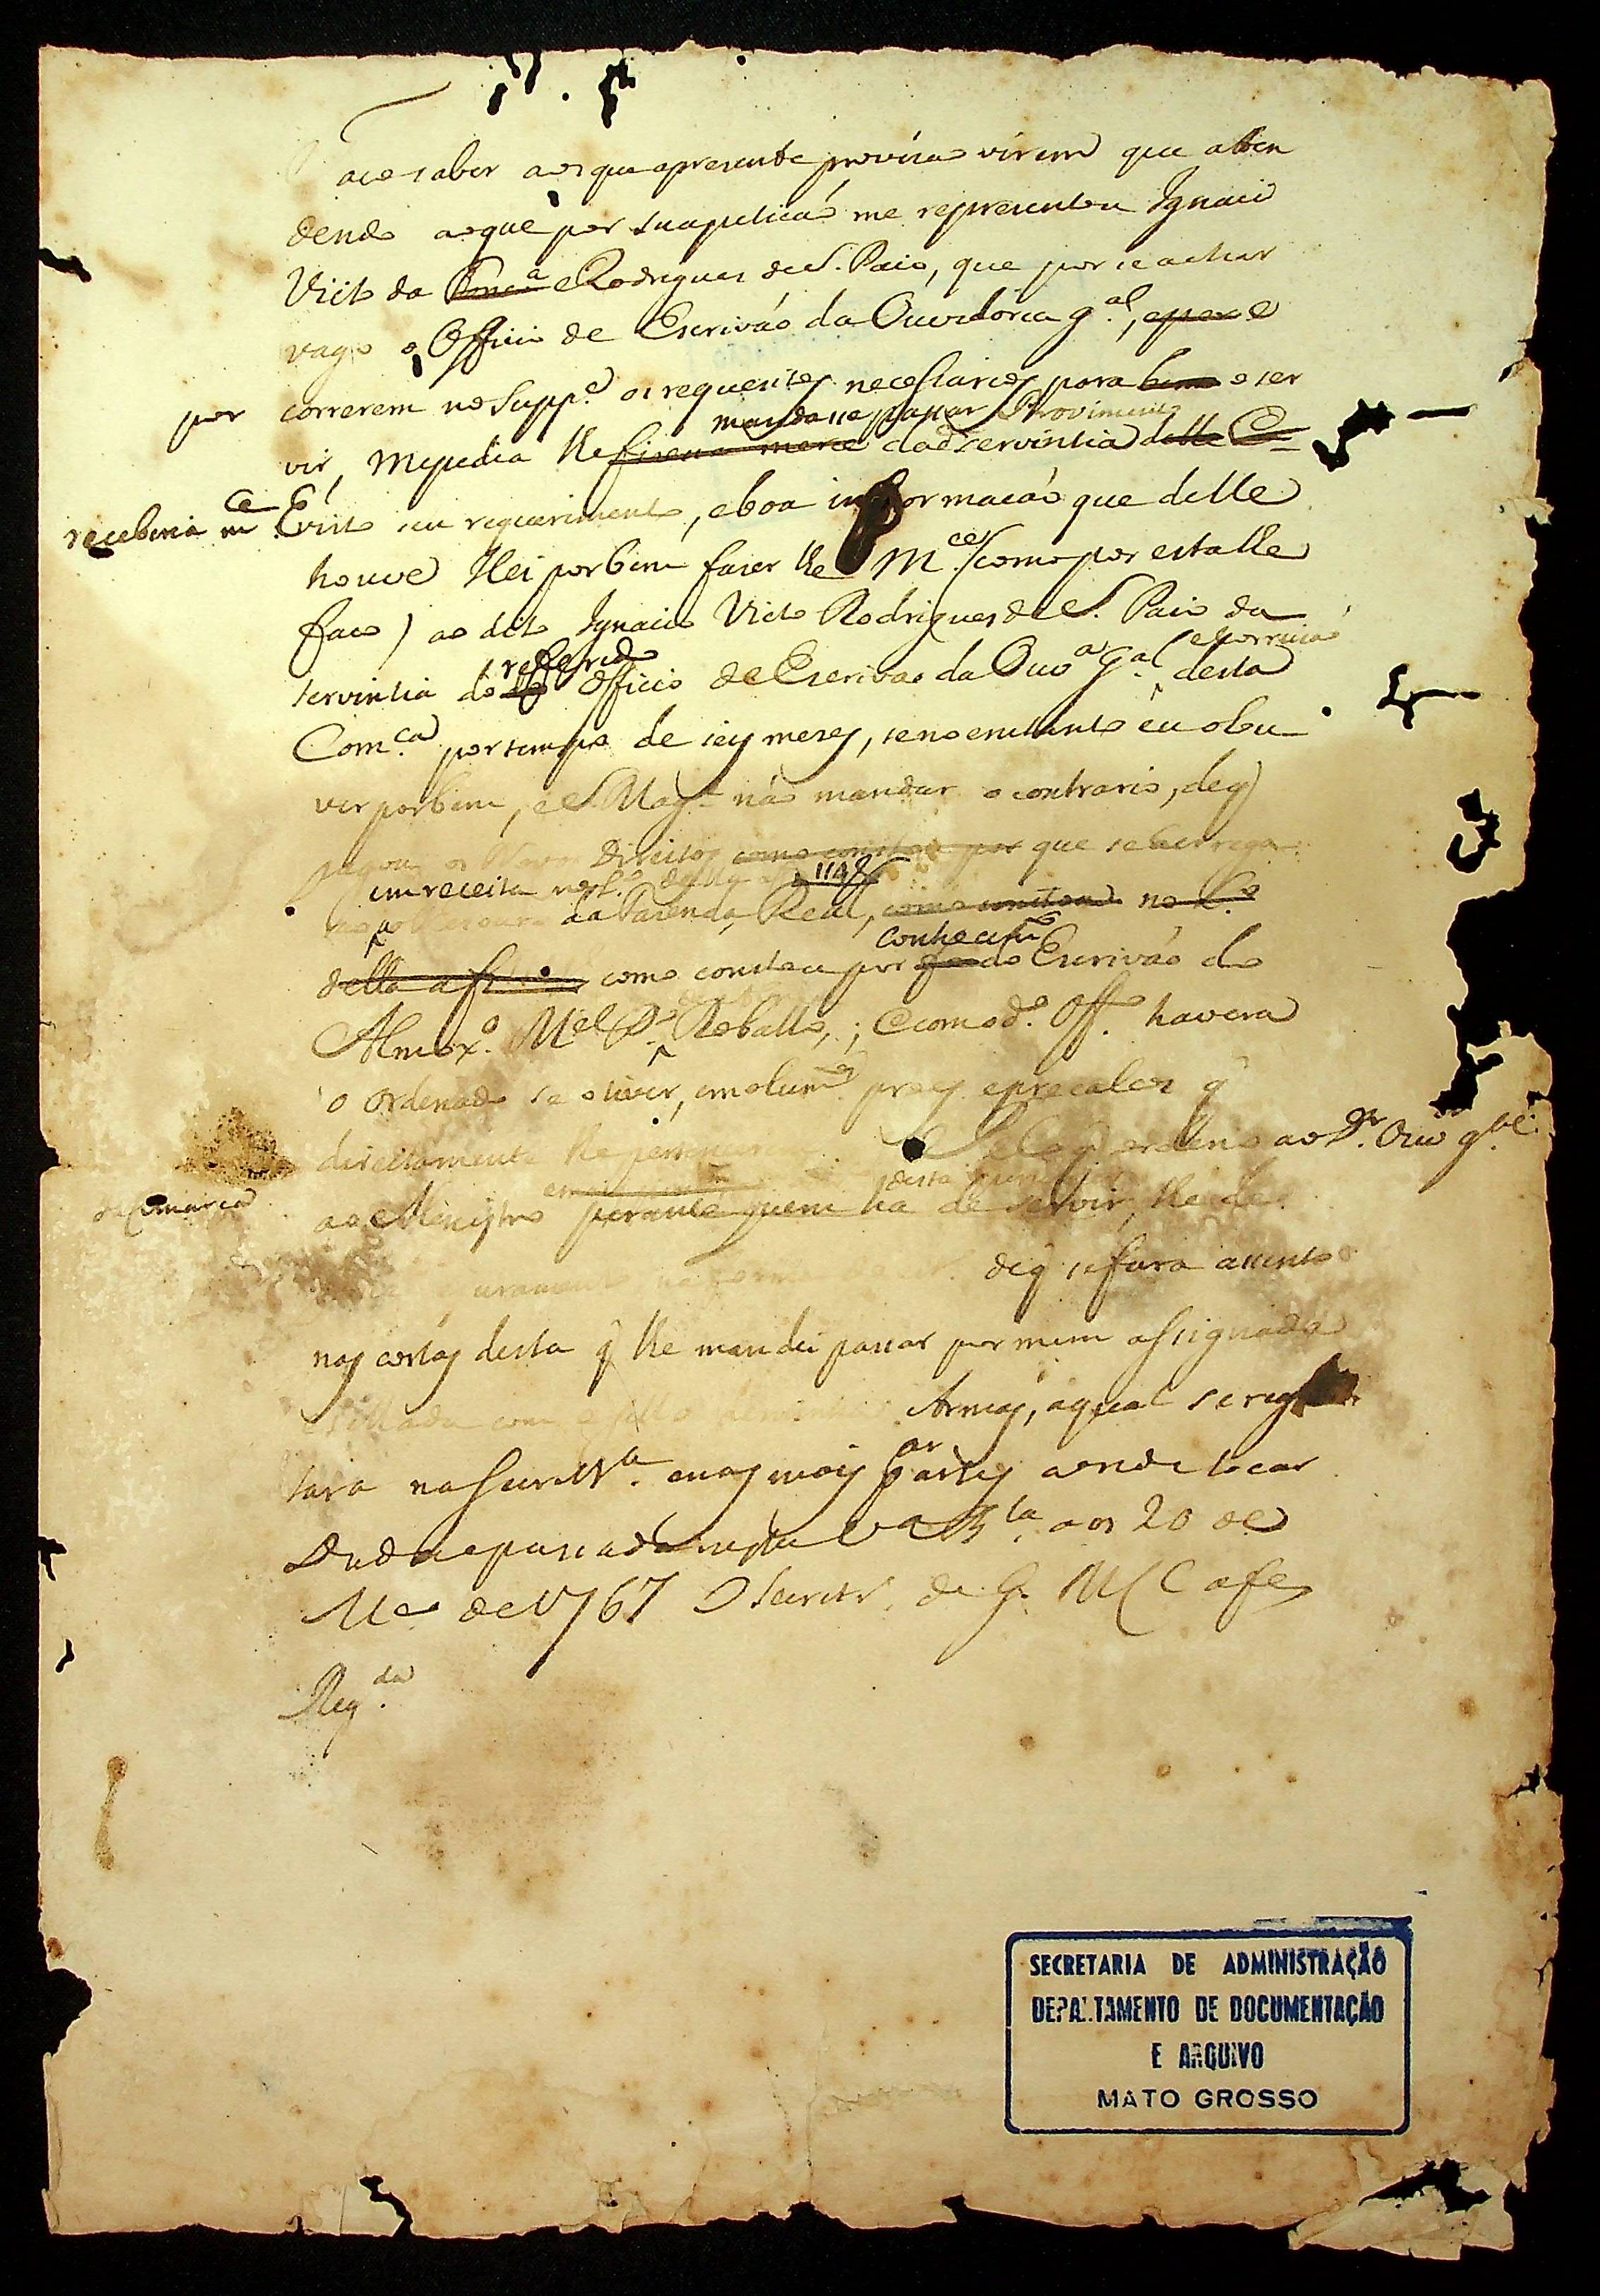 Faço saber aos que a presente provizaõ virem que aten
dendo ao que por sua petiçaõ me reprezentou Ignacio
Victo da Fonc.ª e Rodrigues de S. Paio, que por se achar
vago o Officio de Escrivaõ da Ouvidoria g.al, e por e
por correrem no Supp.e os requezitos necessarios para bem o ser
mandasse passar Provimento
vir, me pedia lhe fizesse merce da d servintia delle E
receberia m.ce E visto seu requerimento, e boa informaçaõ que delle
houve Hei por bem fazer lhe M.ce (como por esta lhe
faço) ao dito Ignacio Victo Rodrigues de S. Paio da
refferido
e Correiçaõ
servintia do Officio de Escrivaõ da Ouv.ª G.al desta
Com.ca por tempo de seis mezes, se no emtanto eu o hou
ver por bem, e S. Mag.e naõ mandar o contrario, de q
pagou os Novos Direitos como constou por que se carregar
em receita no L.º della a f 114
da Fazenda Real, como constou no L.º
conhecim.to
della a f como constou por do Escrivaõ do
Almox.º M.el Reballo; E com o d.º Off.º havera
o ordenado se o tiver, emolum.tos proes e precalços q
directamente lhe pertencerem Pelo q ordeno ao Dr. Ouv g.al
desta
da Comarca ao Ministro perante quem ha de servir, lhe de
juramento na forma de q se fara assento
nas costas desta q lhe mandei passar por mim assignada
e sellada com o sello Armas, a qual se regis
tara na Secret.ª e nas mais partes aonde tocar
Dada e passada nesta V.ª B.la aos 20 de
M.co de 1767 O Secretr. de G.
Reg.da
SECRETARIA DE ADMINISTRAÇÃO
DEPARTAMENTO DE DOCUMENTAÇÃO
E ARQUIVO
MATO GROSSO